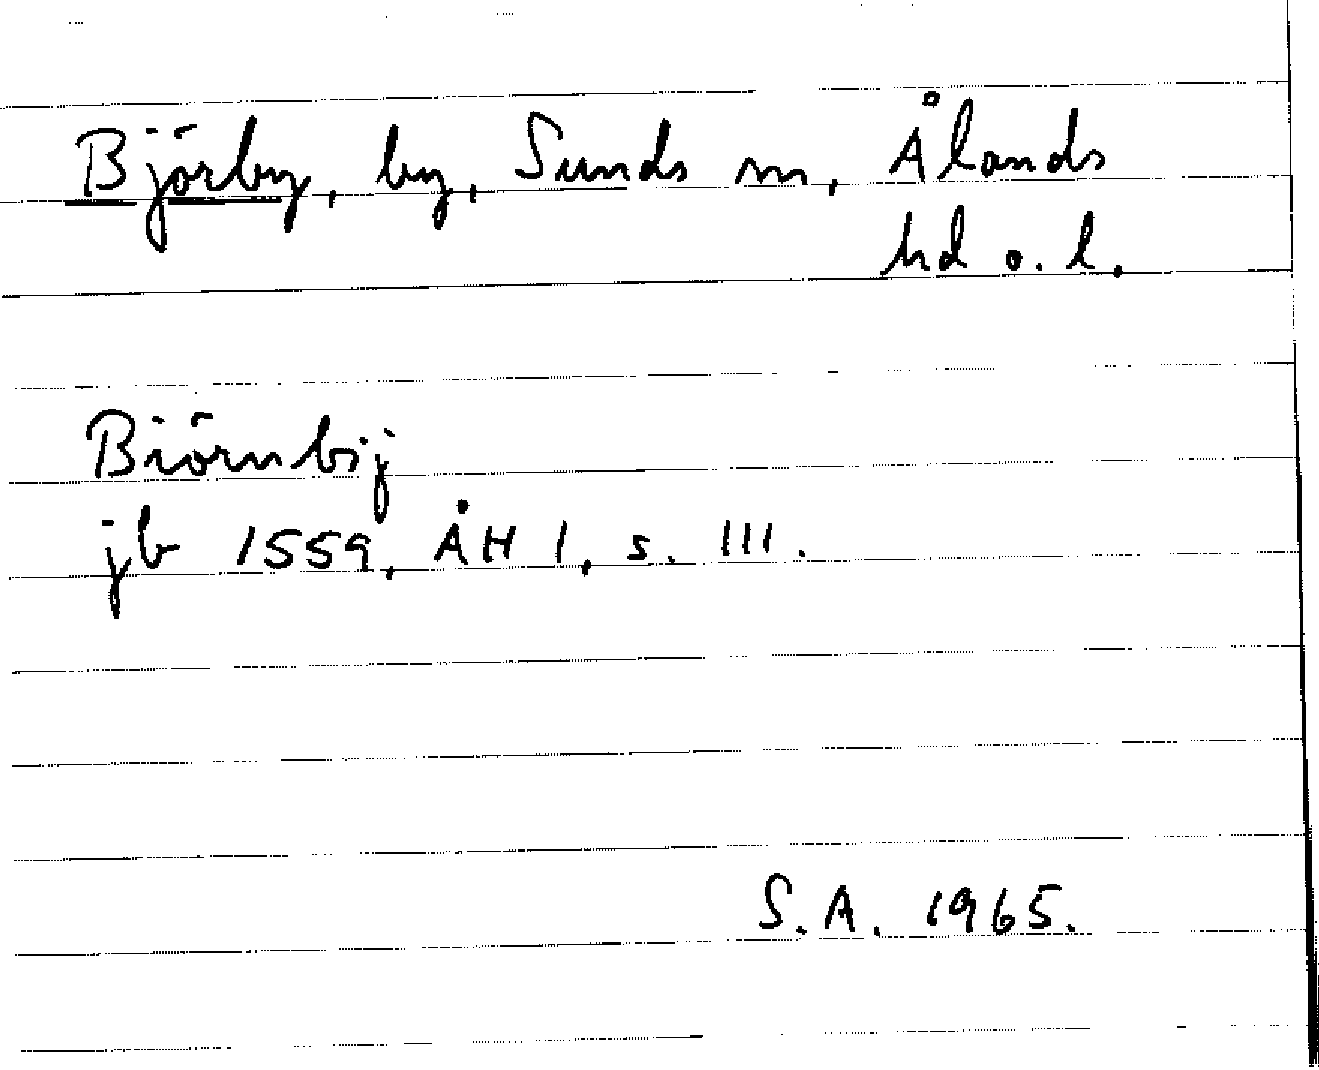 Björby, by, Sunds sn, Ålands
hd o. l.
Biörnbÿj
jb 1559, ÅH I, s. 111.
S.A. 1965.